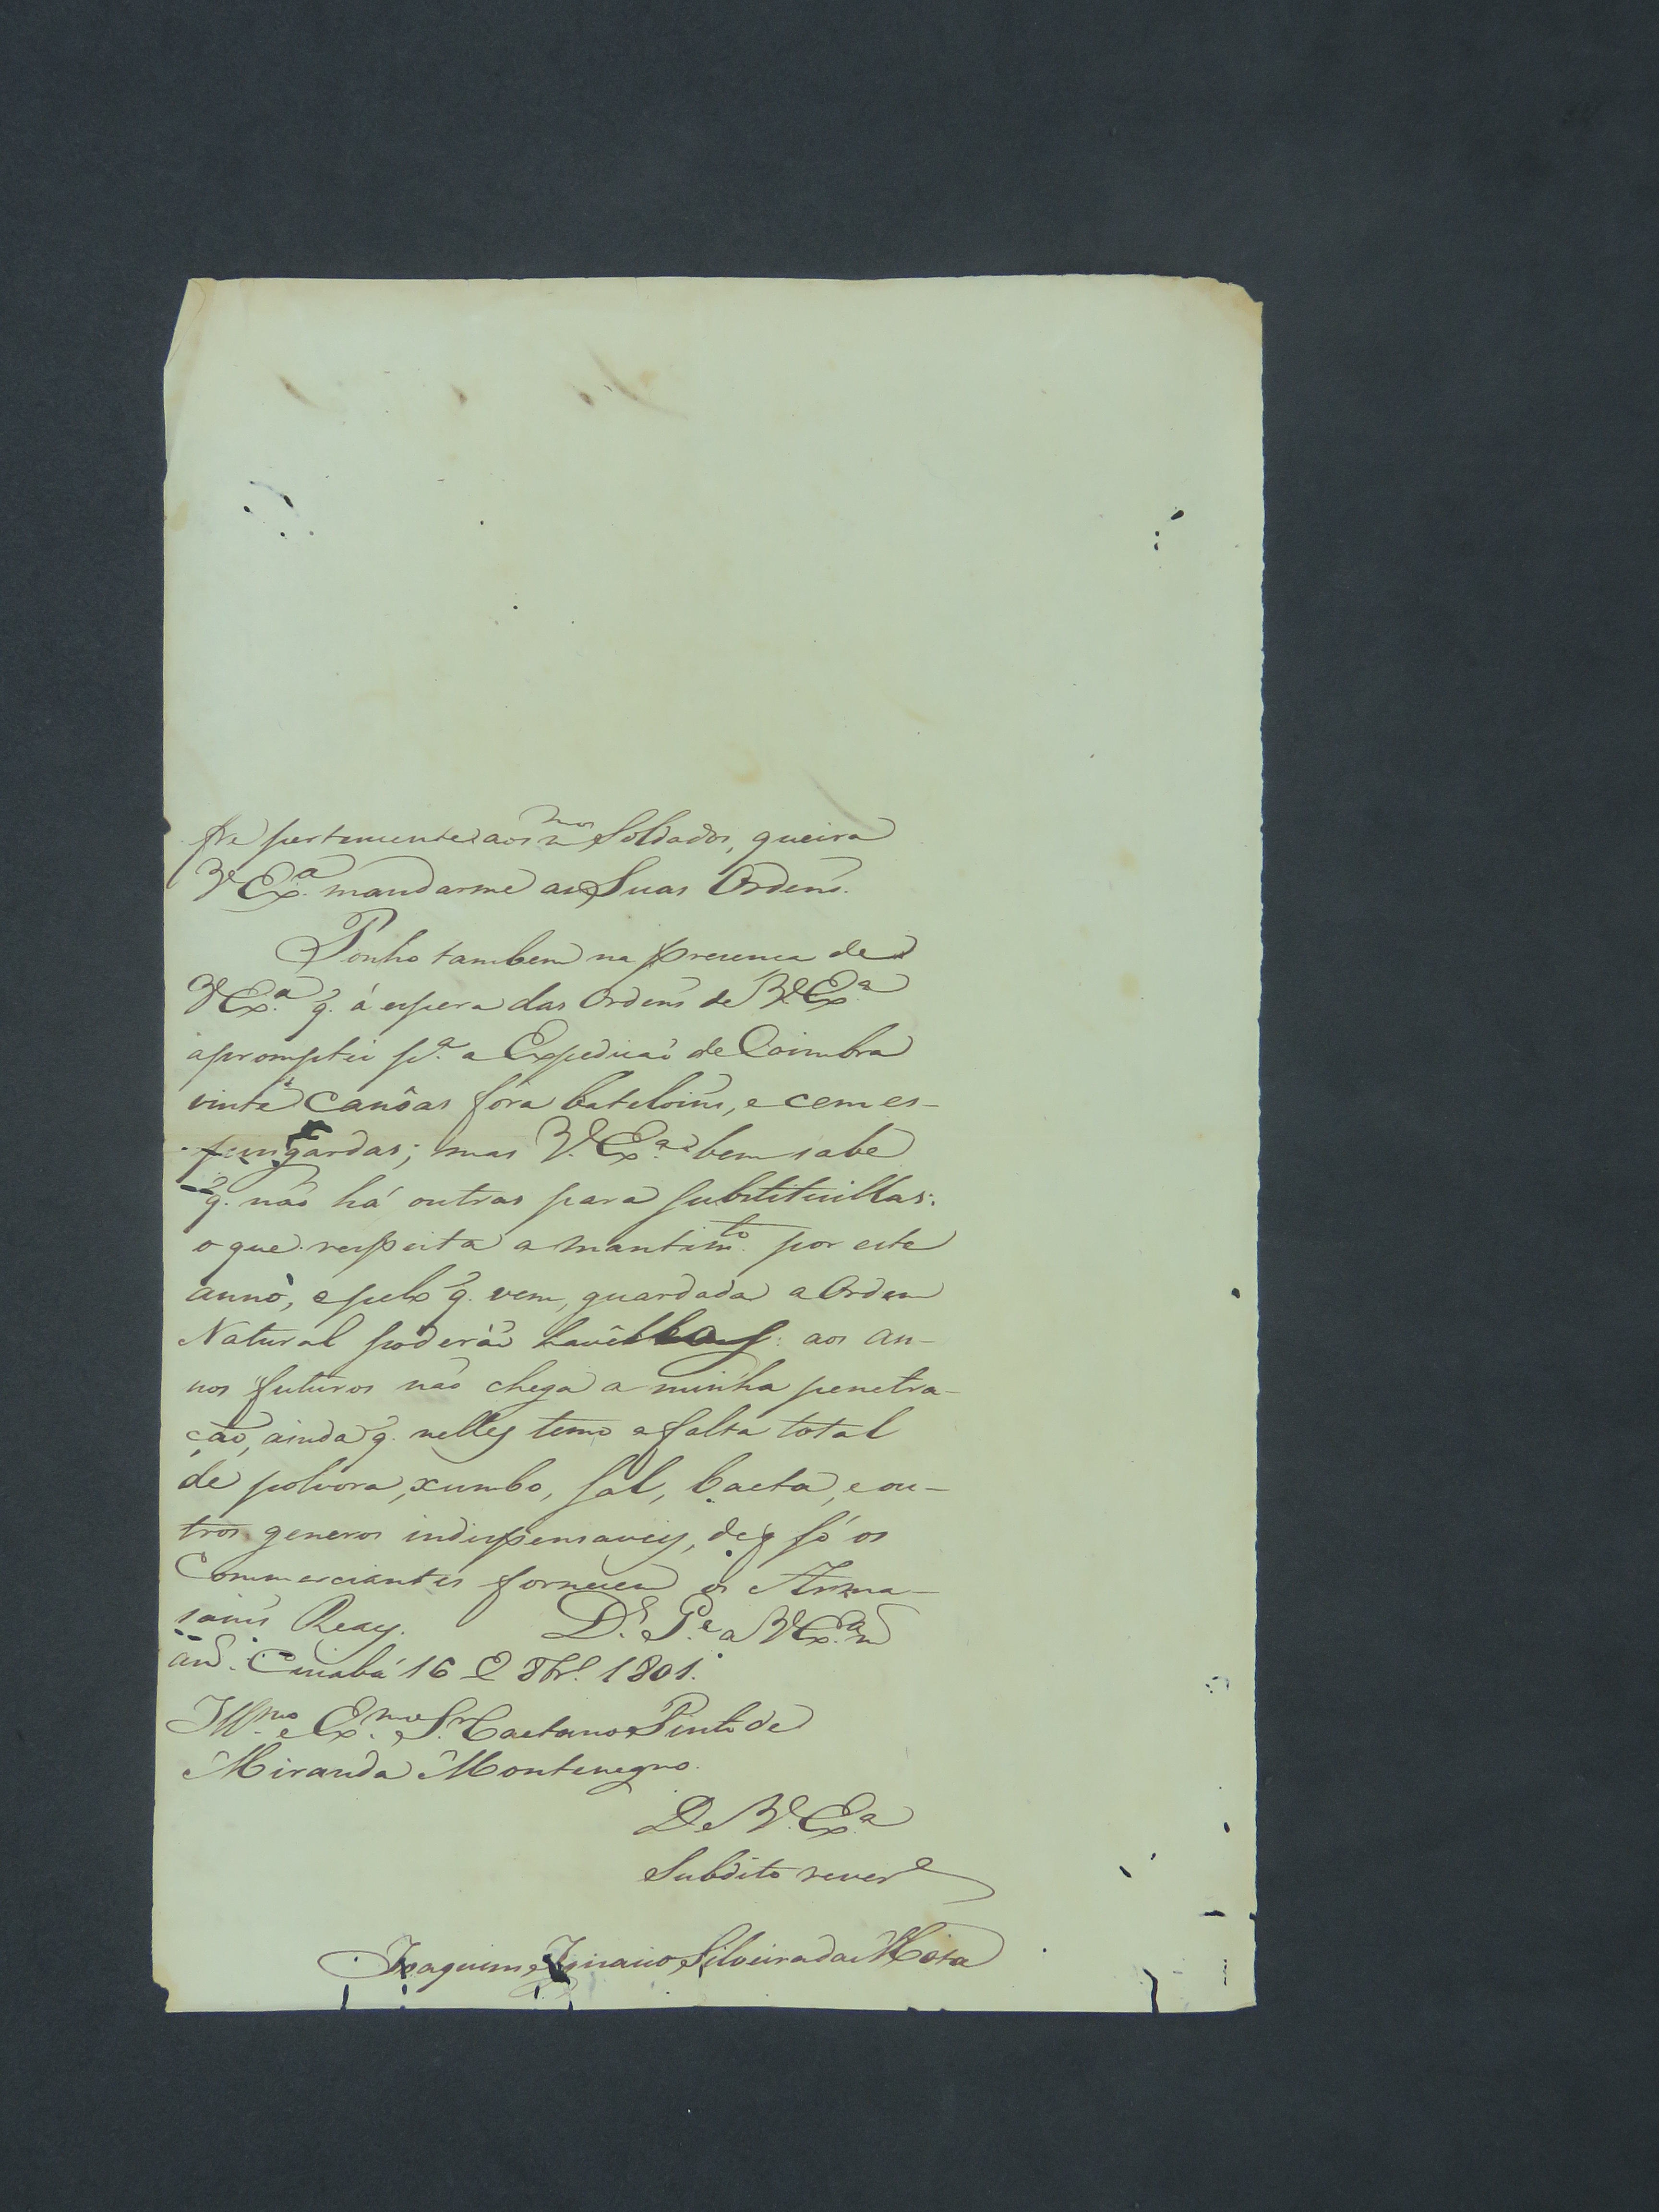 pertencente aos mmos Soldados, queira
V. Exa. mandarme as Suas Ordens.
Ponho tambem na prezença de
V. Exa. q. á espera das Ordens de V. Exa
apromptei pa. a Expedicaõ de Coimbra
vinte canôas fóra bateloins, e cem es-
pingardas; mas V. Exa. bem sabe
q. naõ há outras para substituillas:
o que respeita a mantimto. por este
anno, e pelo q. vem, guardada a Ordem
Natural poderâõ havêllos: aos an-
nos futuros naõ chega a minha penetra-
çaõ, ainda q. nelles temo a falta total
de polvora, xumbo, sal, baeta, e ou-
tros generos indispensaveis, de q só os
Commerciantes fornecem os Arma-
sains Reays. Ds. Ge. a V. Exa. m
ans. Cuiabá 16 de 8br.º 1801.
Illmo. e Exmo. Sr. Caetano Pinto de
Miranda Montenegro.
De V. Exa
Subdito revere
Joaquim Ignacio Silveira da Mota